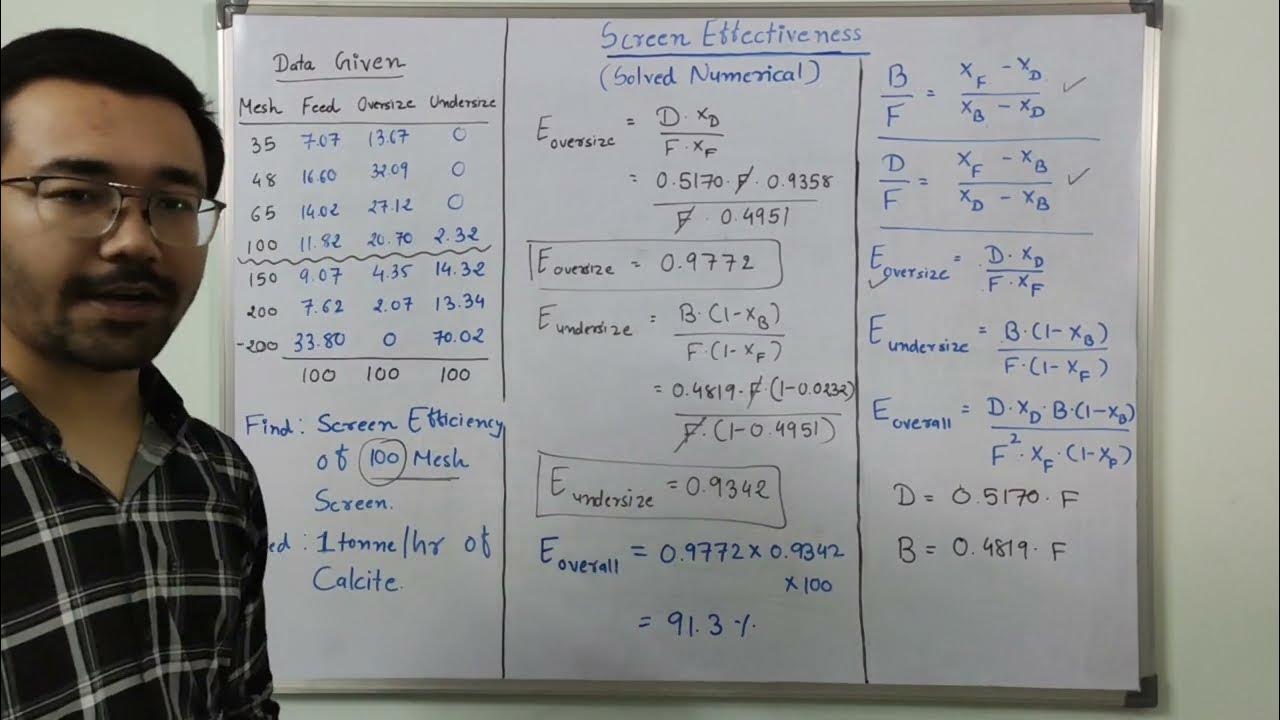 Data Given
Mesh Feed Oversize Undersize
35 7.07 13.67 0
48 16.60 32.09 0
65 14.02 27.12 0
100 11.82 20.70 2.32
150 9.07 4.35 14.32
200 7.62 2.07 13.34
-200 33.80 0 70.02
100 100 100
Find: Screen Efficiency
of 100 Mesh
Screen.
ed: 1 tonne/hr of
Calcite.
Screen Effectiveness
(Solved Numerical)
E oversize = D · x_D / F · x_F
= 0.5170 · F · 0.9358 / F · 0.4951
E oversize = 0.9772
E undersize = B · (1-x_B) / F · (1-x_F)
= 0.4819 · F · (1-0.0232) / F · (1-0.4951)
E undersize = 0.9342
E overall = 0.9772 x 0.9342
x 100
= 91.3 %
B/F = x_F - x_D / x_B - x_D ✓
D/F = x_F - x_B / x_D - x_B ✓
E oversize = D · x_D / F · x_F
✓
E undersize = B · (1-x_B) / F · (1-x_F)
E overall = D · x_D · B · (1-x_B) / F² · x_F · (1-x_F)
D = 0.5170 · F
B = 0.4819 · F